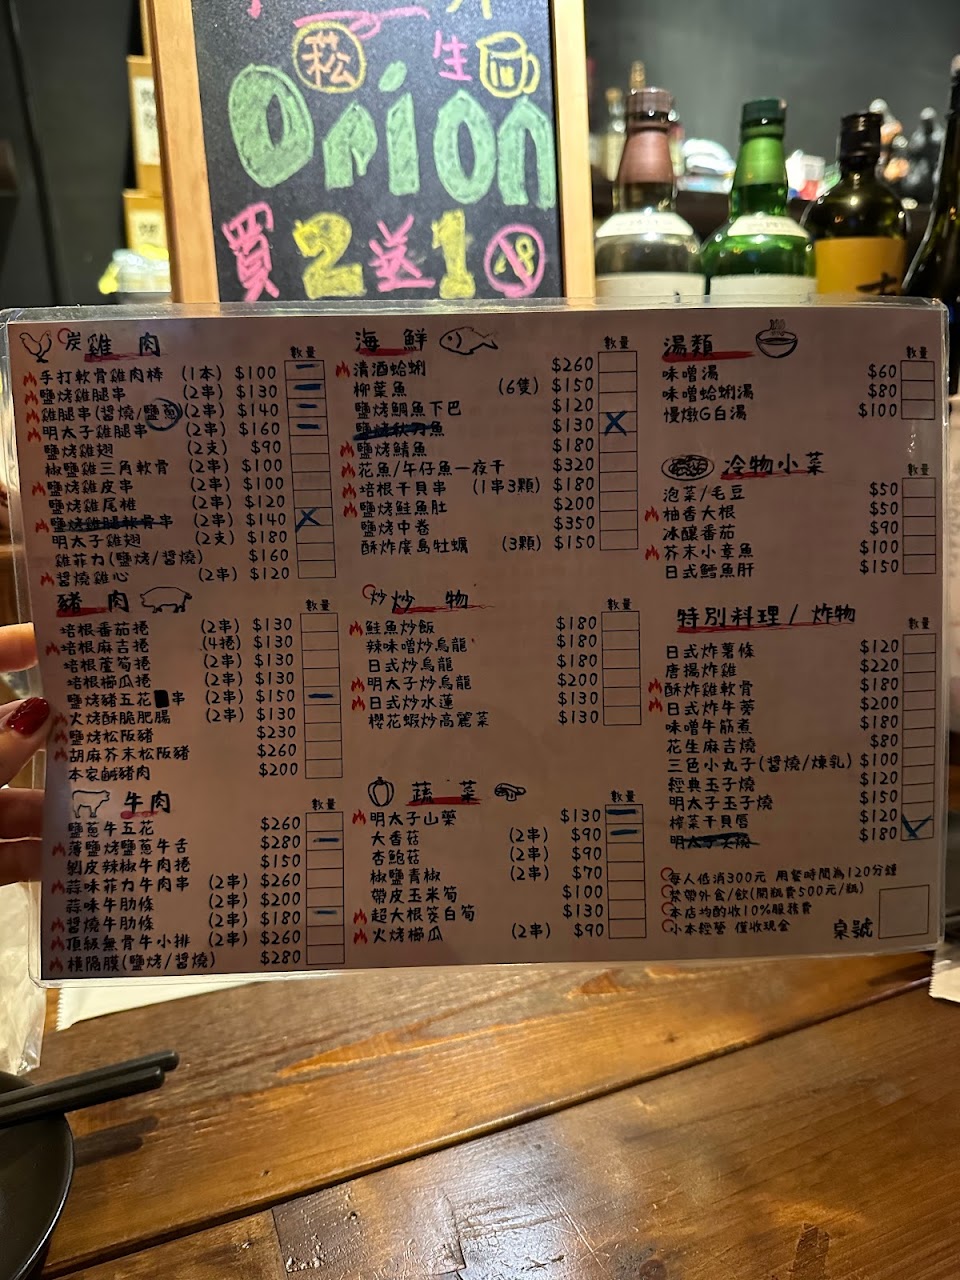 松
生
Orion
買2送1
18
炭雞肉
數量
手打軟骨雞肉棒 (1本) $100
鹽烤雞腿串 (2串) $130
雞腿串(醬燒/鹽蔥) (2串) $140
明太子雞腿串 (2串) $160
鹽烤雞翅 (2支) $90
椒鹽雞三角軟骨 (2串) $100
鹽烤雞皮串 (2串) $100
鹽烤雞尾椎 (2串) $120
鹽烤雞腿軟骨串 (2串) $140
明太子雞翅 (2支) $180
雞菲力(鹽烤/醬燒) $160
醬燒雞心 (2串) $120
豬肉
數量
培根番茄捲 (2串) $130
培根麻吉捲 (4捲) $130
培根蘆筍捲 (2串) $130
培根櫛瓜捲 (2串) $130
鹽烤豬五花串 (2串) $150
火烤酥脆肥腸 (2串) $130
鹽烤松阪豬 $230
胡麻芥末松阪豬 $260
本家鹹豬肉 $200
牛肉
數量
鹽蔥牛五花 $260
薄鹽烤鹽蔥牛舌 $280
剝皮辣椒牛肉捲 $150
蒜味菲力牛肉串 (2串) $260
蒜味牛肋條 (2串) $200
醬燒牛肋條 (2串) $180
頂級無骨牛小排 (2串) $260
橫隔膜(鹽烤/醬燒) $280
海鮮
數量
清酒蛤蜊 $260
柳葉魚 (6隻) $150
鹽烤鯛魚下巴 $120
鹽烤秋刀魚 $130
鹽烤鯖魚 $180
花魚/午仔魚一夜干 $320
培根干貝串 (1串3顆) $180
鹽烤鮭魚肚 $200
鹽烤中卷 $350
酥炸廣島牡蠣 (3顆) $150
炒炒物
數量
鮭魚炒飯 $180
辣味噌炒烏龍 $180
日式炒烏龍 $180
明太子炒烏龍 $200
日式炒水蓮 $130
櫻花蝦炒高麗菜 $130
蔬菜
數量
明太子山藥 $130
大香菇 (2串) $90
杏鮑菇 (2串) $90
椒鹽青椒 (2串) $70
帶皮玉米筍 $100
超大根筊白筍 $130
火烤櫛瓜 (2串) $90
湯類
數量
味噌湯 $60
味噌蛤蜊湯 $80
慢燉G白湯 $100
冷物小菜
數量
泡菜/毛豆 $50
柚香大根 $50
冰釀番茄 $90
芥末小章魚 $100
日式鱈魚肝 $150
特別料理/炸物
數量
日式炸薯條 $120
唐揚炸雞 $220
酥炸雞軟骨 $180
日式炸牛蒡 $200
味噌牛筋煮 $180
花生麻吉燒 $80
三色小丸子(醬燒/煉乳) $100
經典玉子燒 $120
明太子玉子燒 $150
榨菜干貝唇 $120
$180
每人低消300元 用餐時間為120分鐘
禁帶外食/飲(開瓶費500元/瓶)
本店均酌收10%服務費
小本經營 僅收現金
桌號